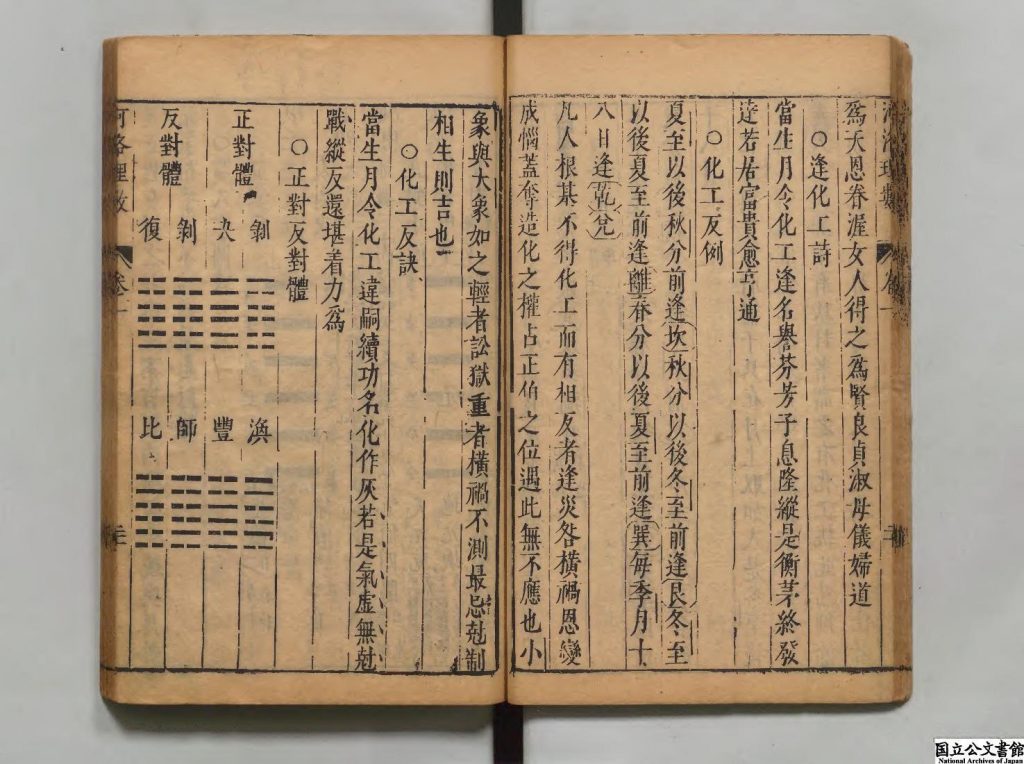 河洛理數 卷一
爲天恩眷渥女人得之爲賢良貞淑母儀婦道
○逢化工詩
當生月令化工逢名譽芬芳子息隆縱是衡茅終發
達若居富貴愈亨通
○化工反例
夏至以後秋分前逢坎秋分以後冬至前逢艮冬至
以後夏至前逢離春分以後夏至前逢巽每季月十
八日逢乾兌
凡人根基不得化工而有相反者逢災咎橫禍恩變
成惱蓋奪造化之權占正伯之位遇此無不應也小
象與大象如之輕者訟獄重者橫禍不測最忌尅制
相生則吉也
○化工反訣
當生月令化工違嗣續功名化作灰若是氣虛無尅
戰縱反還堪着力爲
○正對反對體
剝 渙
正對體 夬 豐
剝 師
反對體 復 比
河洛理數 卷一
国立公文書館
National Archives of Japan